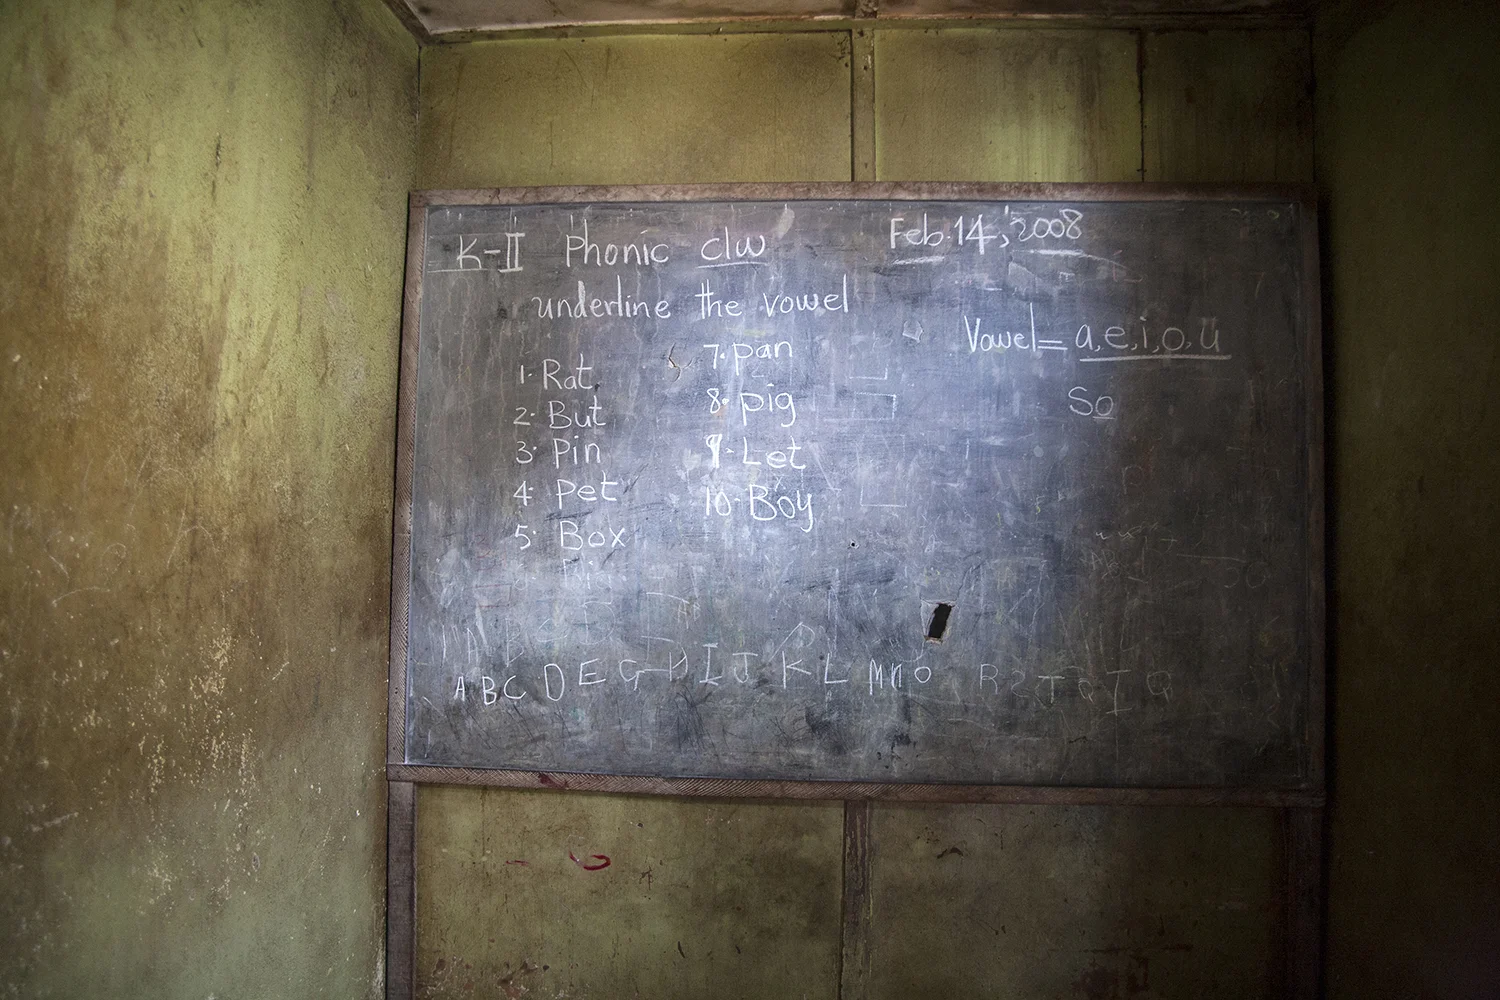 K-II Phonic c/w Feb. 14, 2008
underline the vowel
Vowel = a, e, i, o, u
so
1. Rat
2. But
3. Pin
4. Pet
5. Box
7. pan
8. pig
9. Let
10. Boy
A B C D E G H I J K L M N O R S T Q I Q